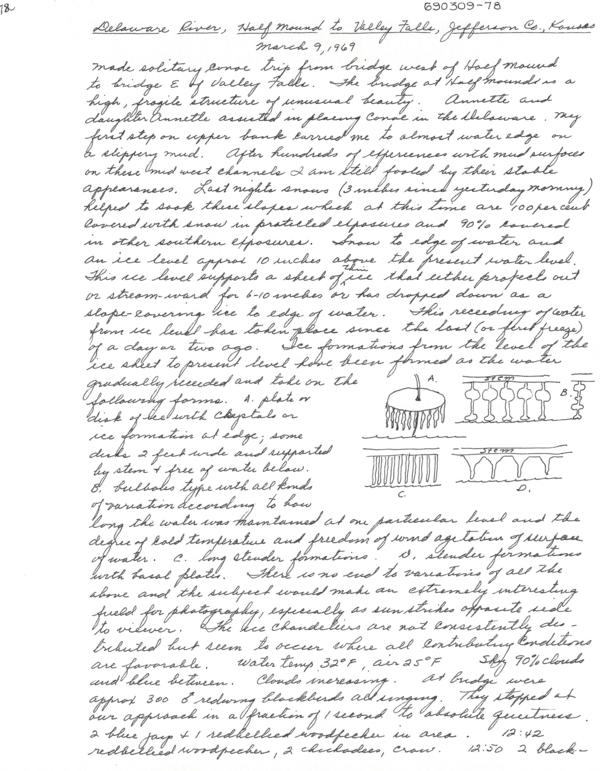 78.
690309-78
Delaware River, Half Mound to Valley Falls, Jefferson Co., Kansas
March 9, 1969
made solitary canoe trip from bridge west of Half Mound
to bridge E of Valley Falls. The bridge at Half Mound is a
high, fragile structure of unusual beauty. Annette and
daughter Annette assisted in placing canoe in the Delaware. My
first step on upper bank carried me to almost water edge on
a slippery mud. After hundreds of experiences with mud surfaces
on these mid west channels I am still fooled by their stable
appearances. Last nights snows (3 inches since yesterday morning)
helped to soak these slopes which at this time are 100 per cent
covered with snow in protected exposures and 90% covered
in other southern exposures. Snow to edge of water and
an ice level approx 10 inches above the present water level.
This ice level supports a sheet of thin ice that either projects out
or stream-ward for 6-10 inches or has dropped down as a
slope-covering ice to edge of water. This receeding of water
from ice level has taken place since the last (or first freeze)
of a day or two ago. Ice formations from the level of the
ice sheet to present level have been formed as the water
gradually receeded and take on the
following forms. A. plate or
disk of ice with crystals or
ice formation at edge; some
disks 2 feet wide and supported
by stem & free of water below.
B. bulbous type with all kinds
of variation according to how
A.
stem
B.
C.
stem
D.
long the water was maintained at one particular level and the
degree of cold temperature and freedom of wind agetation of surface
of water. C. long slender formations. D. slender formations
with basal plates. There is no end to variations of all the
above and the subject would make an extremely interesting
field for photography, especially as sun strikes opposite side
to viewer. The ice chandeliers are not consistently dis-
tributed but seem to occur where all contributing conditions
are favorable. Water temp. 32°F, air 25°F Sky 90% clouds
and blue between. Clouds increasing. At bridge were
approx 300 ♂ redwing blackbirds all singing. They stopped at
our approach in a fraction of 1 second to absolute quietness.
2 blue jays & 1 redbellied woodpecker in area. 12:42
redbellied woodpecker, 2 chickadees, crow. 12:50 2 black-